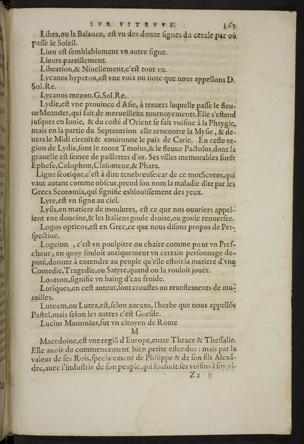 SVR VITRVVE. 363
Libra, ou la Balance, est vn des douze signes du cercle par où
passe le Soleil.
Lion est semblablement vn autre signe.
Lieure pareillement.
Libration, & Niuellement, c'est tout vn.
Lycanos hypaton, est vne voix ou note que nous appellons D.
Sol. Re.
Lycanos mezon. G. Sol. Re.
Lydie, est vne prouince d'Asie, à trauers laquelle passe le fleu-
ue Meander, qui fait de merueilleux tournoyements. Elle s'estend
iusques en Ionie, & du costé d'Orient se fait voisine à la Phrygie,
mais en la partie du Septentrion elle rencontre la Mysie, & de-
uers le Midi circuit & enuironne le païs de Carie. En ceste re-
gion de Lydie, sont le mont Tmolus, & le fleuue Pactolus, dont la
grauelle est semee de paillettes d'or. Ses villes memorables furēt
Ephese, Colophon, Clasomene, & Phara.
Ligne scotique, c'est à dire tenebreuse: car de ce mot Scotos, qui
vaut autant comme obscur, prend son nom la maladie dite par les
Grecs Scotomia, qui signifie esblouissement des yeux.
Lyre, est vn signe au ciel.
Lysis, en matiere de moulures, est ce que nos ouuriers appel-
lent vne doucine, & les Italiens goule droite, ou goule renuersee.
Logos opticos, est en Grec, ce que nous disons propos de Per-
spectiue.
Logeion, c'est vn poulpitre ou chaire comme pour vn Pres-
cheur, en quoy souloit antiquement vn certain personnage de-
puté, donner à entendre au peuple qu'elle estoit la matiere d'vne
Comedie, Tragedie, ou Satyre, quand on la vouloit iouër.
Loutron, signifie vn baing d'eau froide.
Loriques, en cest auteur, sont croustes ou reuestements de mu-
railles.
Luteum, ou Lutea, est, selon aucuns, l'herbe que nous appellōs
Pastel, mais selon les autres c'est Guesde.
Lucius Mummius, fut vn citoyen de Rome
M
Macedoine, est vne regiō d'Europe, entre Thrace & Thessalie.
Elle auoit du commencement bien petite estendue: mais par la
valeur de ses Rois, specialement de Philippe & de son fils Alexā-
dre, auec l'industrie de son peuple, qui soubmit ses voisins à soy, el-
Zz ij